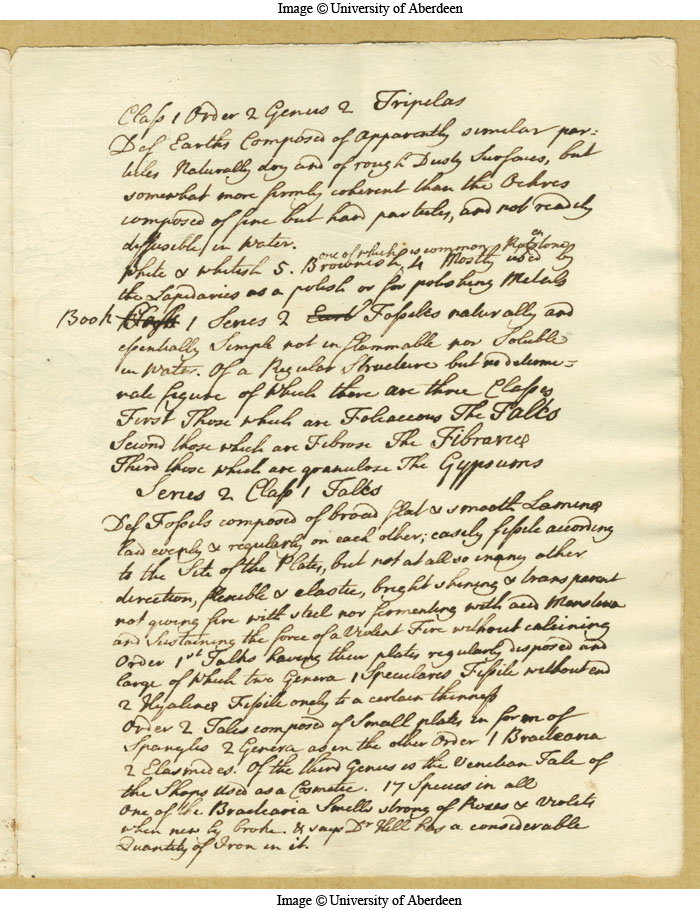 Image © University of Aberdeen
Class 1 Order 2 Genus 2 Tripelas
Def Earths Composed of Apparently similar par=
ticles Naturally dry and of rough Dusty Surfaces, but
somewhat more firmly coherent than the Ochres
composed of fine but hard particles, and not readily
diffusible in water.
one of which is common Rotenstone
White & whitish 5. Brownish 4 Mostly used by
the Lapidaries as a polish or for polishing Metals
Book 1 Series 2 Fossiles naturally and
essentially Simple not inflammable nor Soluble
in Water. Of a Regular Structure but no determi=
nate figure of Which there are three Classes
First Those which are Foliaceous The Talks
Second those which are Fibrose The Fibrariæ
Third those which are granulose The Gypsums
Series 2 Class 1 Talks
Def Fossils composed of broad flat & smooth Laminæ
laid evenly & regularly on each other; easely fissile according
to the Site of the Plates, but not at all so in any other
direction, flexible & elastic, bright shining & transparent
not giving fire with steel nor fermenting with acid Menstrua
and Sustaining the force of a Violent Fire without calcining
Order 1st Talks having their plates regularly disposed and
large of Which two Genera 1 Speculares Fissile without end
2 Hyalinæ Fissile onely to a certain thinness
Order 2 Talcs composed of Small plates in form of
Spangles 2 Genera as in the other Order 1 Bractearia
2 Elasmides. Of the third Genus is the Venetian Talc of
the Shops used as a Cosmetic. 17 Species in all
One of the Bractearia Smells strong of Roses & Violets
when newly broke. & says Dr Hill has a considerable
Quantity of Iron in it.
Image © University of Aberdeen